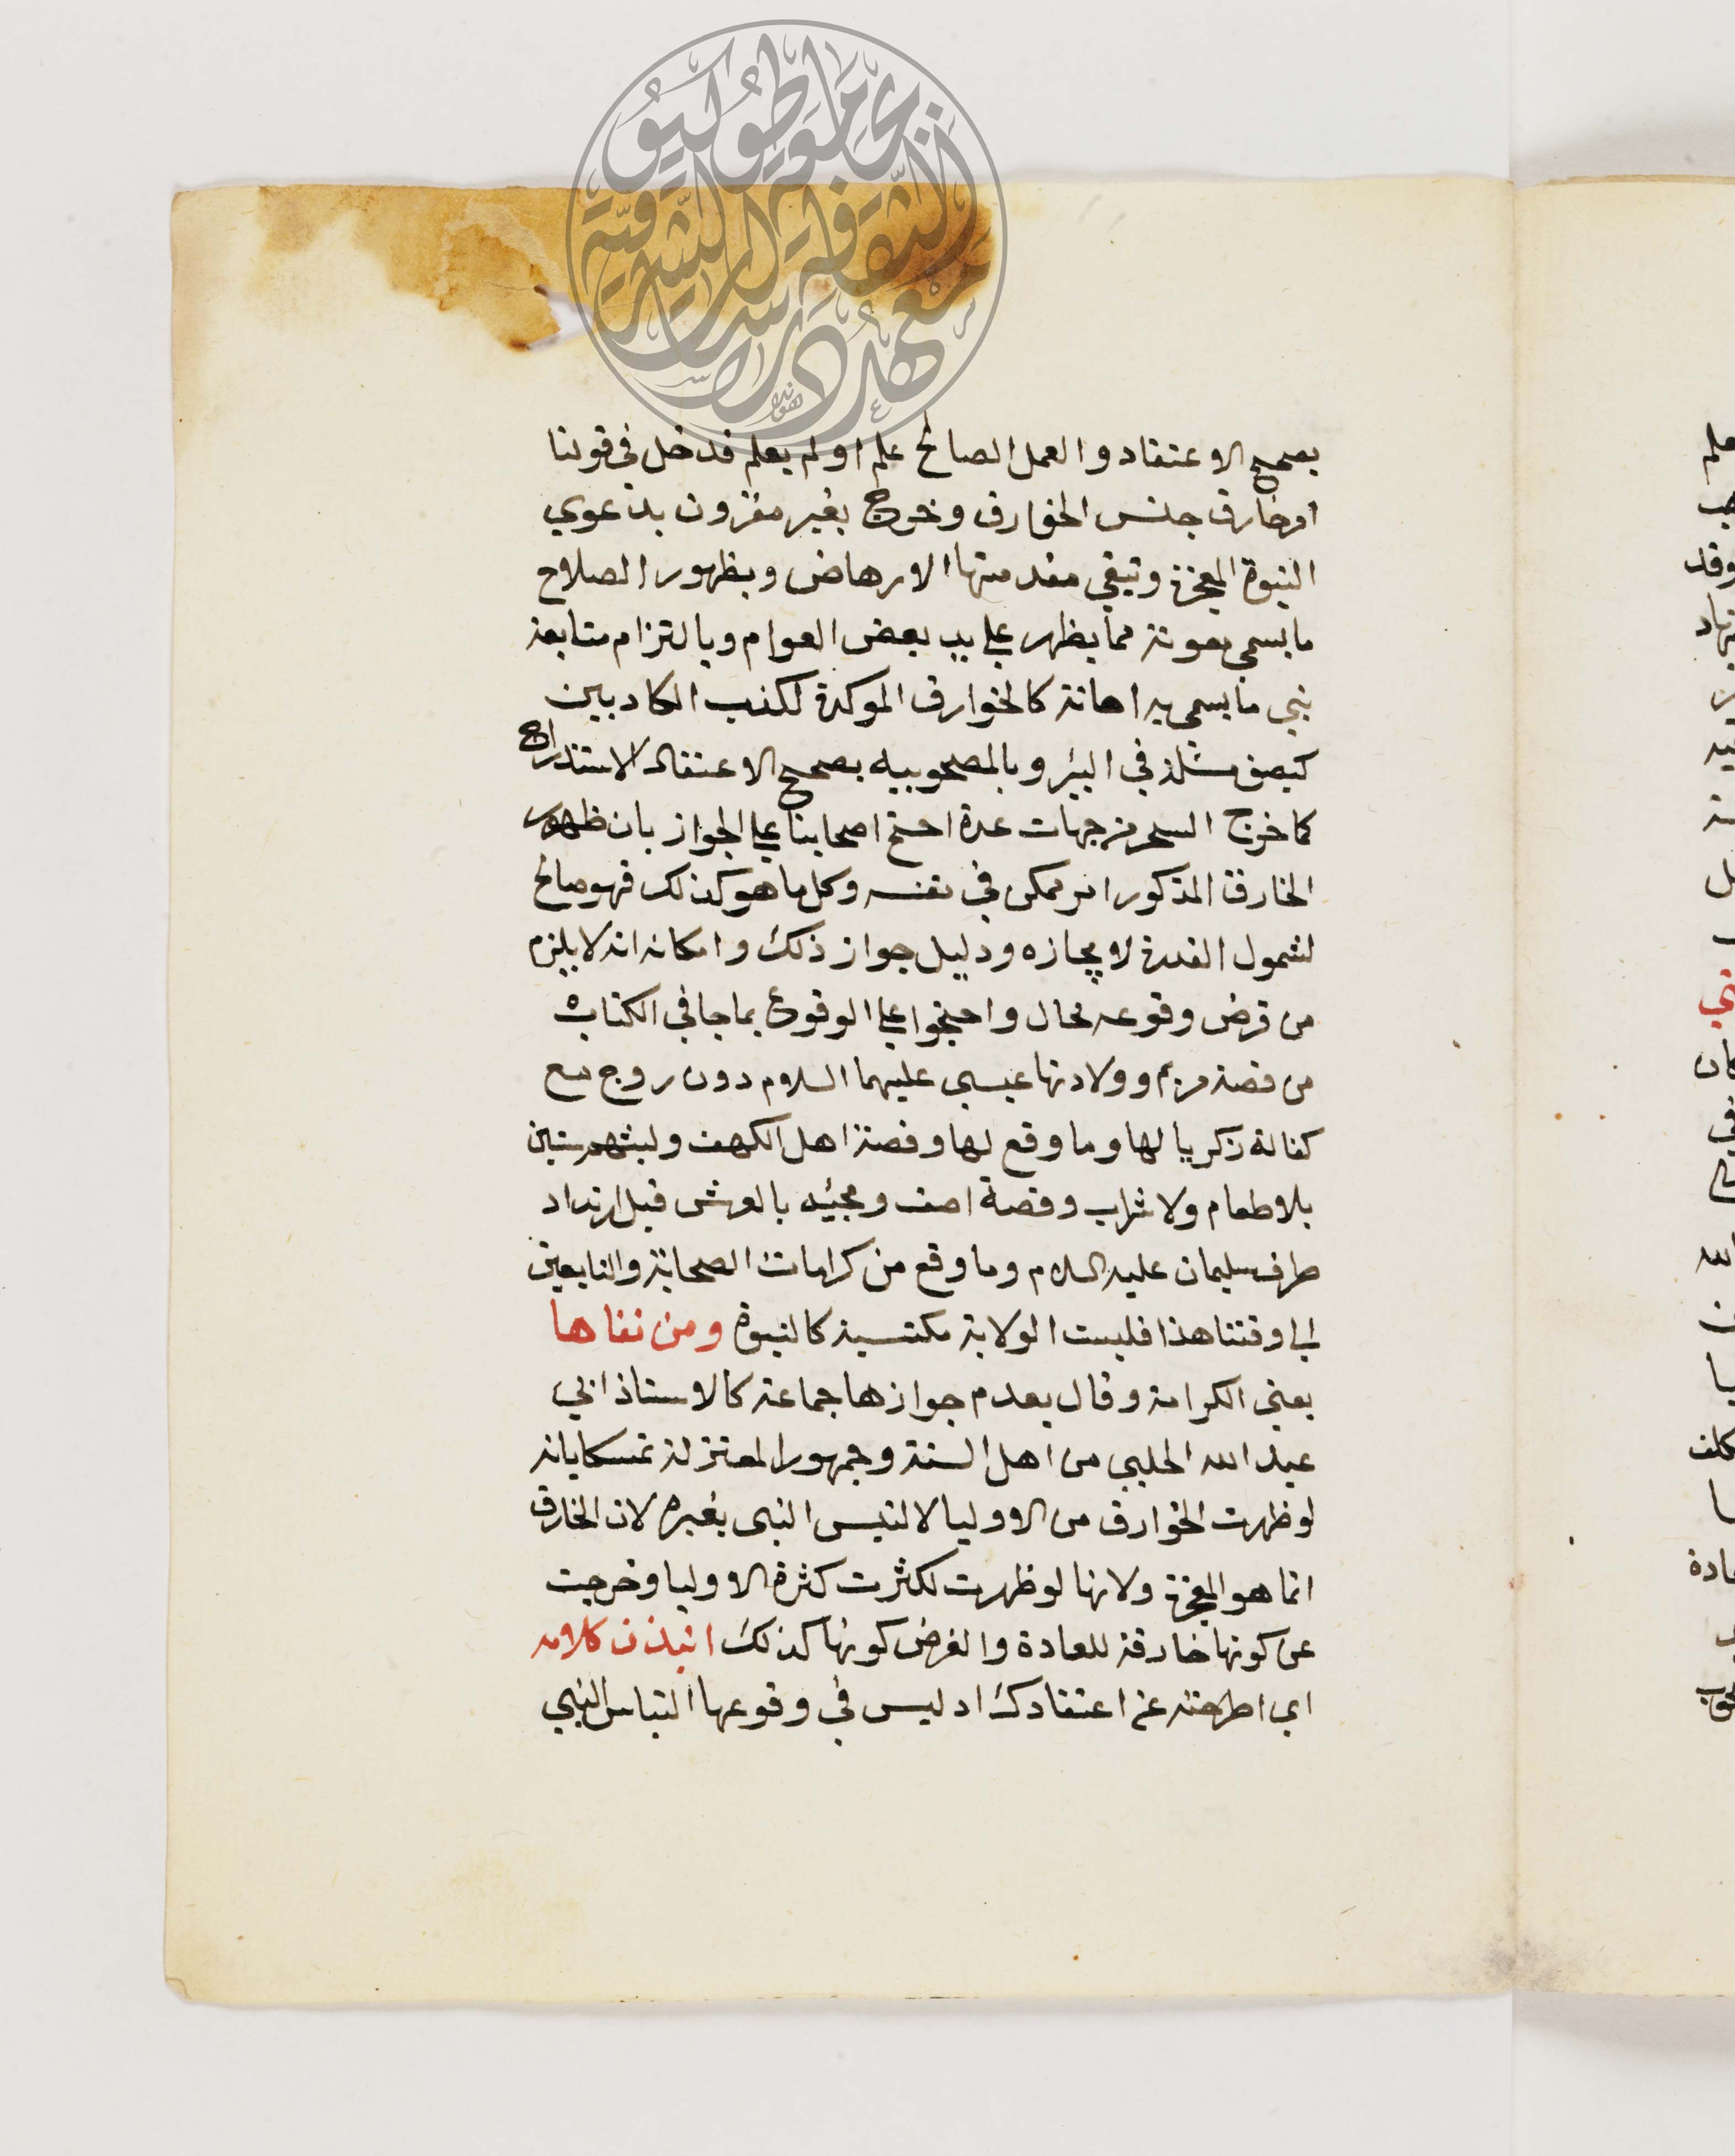 بصحيح الاعتقاد والعمل الصالح علم اولم يعلم فدخل في قولنا
امرخارق جنس الخوارق وخرج بغير مقرون بدعوي
النبوة المعجزة وتبقي مقدمتها الارهاض وبظهور الصلاح
ما يسمي معونة مما يظهر علي يد بعض العوام وبالتزام متابعة
نبي ما يسمي به اهانة كالخوارق الموكدة لكذب الكاذبين
كبصق مسيلمة في البئر وبالمصحوبيه بصحيح الاعتقاد الاستدراج
كما خرج السحر من جهات عدة احتج اصحابنا علي الجواز بان ظهور
الخارق المذكور امر ممكن في نفسه وكل ما هو كذلك فهو صالح
لشمول القدرة لايجازه ودليل جواز ذلك وامكانه انه لا يلزم
من فرض وقوعه محال واحتجوا علي الوقوع بما جا في الكتاب
من قصة مريم وولادتها عيسي عليهما السلام دون زوج مع
كفالة زكريا لها وما وقع لها وقصة اهل الكهف ولبثهم سنين
بلا طعام ولا شراب وقصة اصف ومجيئه بالعرش قبل ارتداد
طرف سليمان عليه السلام وما وقع من كرامات الصحابة والتابعين
الي وقتنا هذا فليست الولاية مكتسبة كالنبوة ومن نفاها
يعني الكرامة وقال بعدم جوازها جماعة كالاستاذ ابي
عبد الله الحليمي من اهل السنة وجمهور المعتزلة تمسكا بانه
لو ظهرت الخوارق من الاوليا لالتبس النبي بغيره لان الخارق
انما هو المعجزة ولانها لو ظهرت لكثرت كثرة الاوليا وخرجت
عن كونها خارقة للعادة والفرض كونها كذلك انبذن كلامه
اي اطرحنه عن اعتقادك اذ ليس في وقوعها التباس النبي